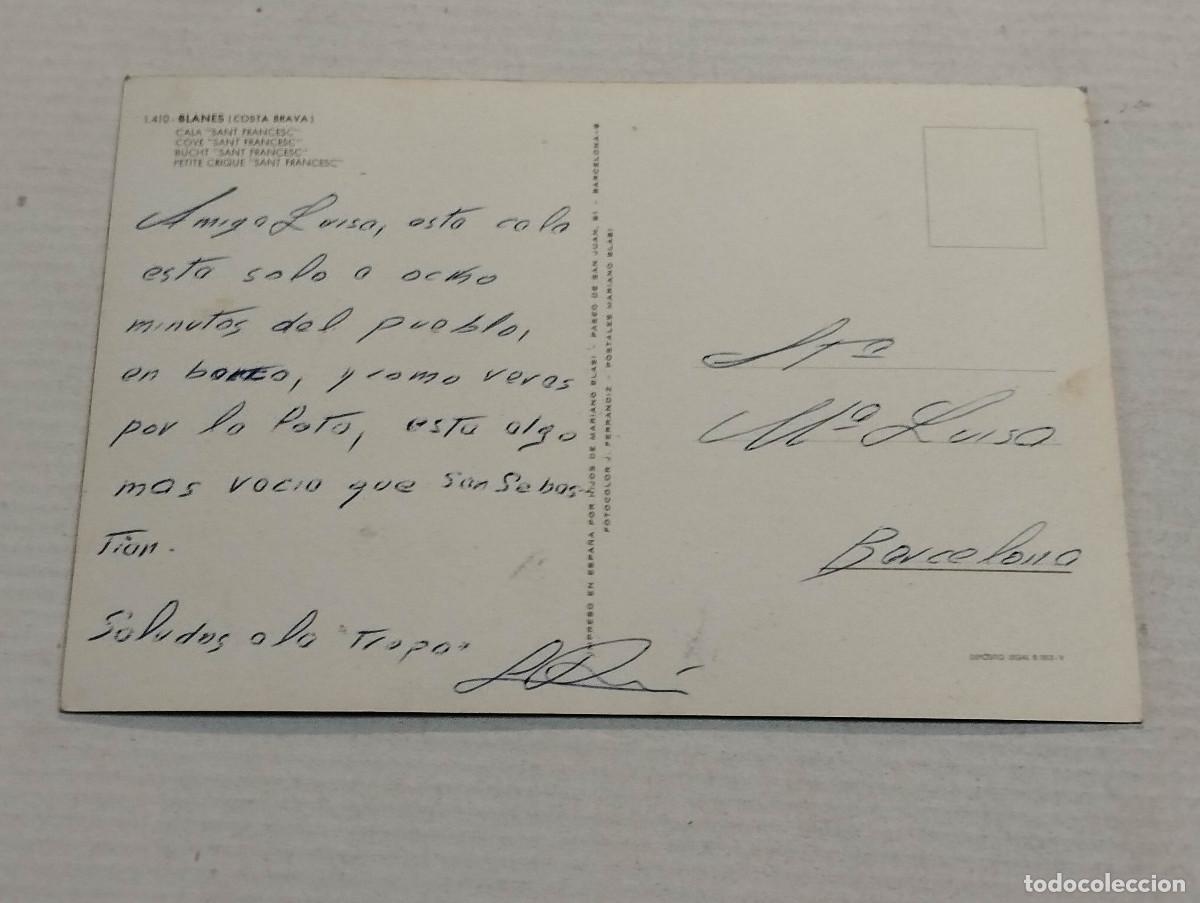 1.410 - BLANES (COSTA BRAVA)
CALA "SANT FRANCESC"
COVE "SANT FRANCESC"
BUCHT "SANT FRANCESC"
PETITE CRIQUE "SANT FRANCESC"
Amiga Luisa, esta cala
esta solo a ocho
minutos del pueblo,
en barco, y como veras
por la Foto, esta algo
mas vacia que San Sebas-
Tian.
Saludos a la "Tropa"
IMPRESO EN ESPAÑA POR HIJOS DE MARIANO BLASI - PASEO DE SAN JUAN, 81 - BARCELONA-9
FOTOCOLOR J. FERRANDIZ - POSTALES MARIANO BLASI
Srta
Mª Luisa
Barcelona
DEPÓSITO LEGAL B.
todocoleccion